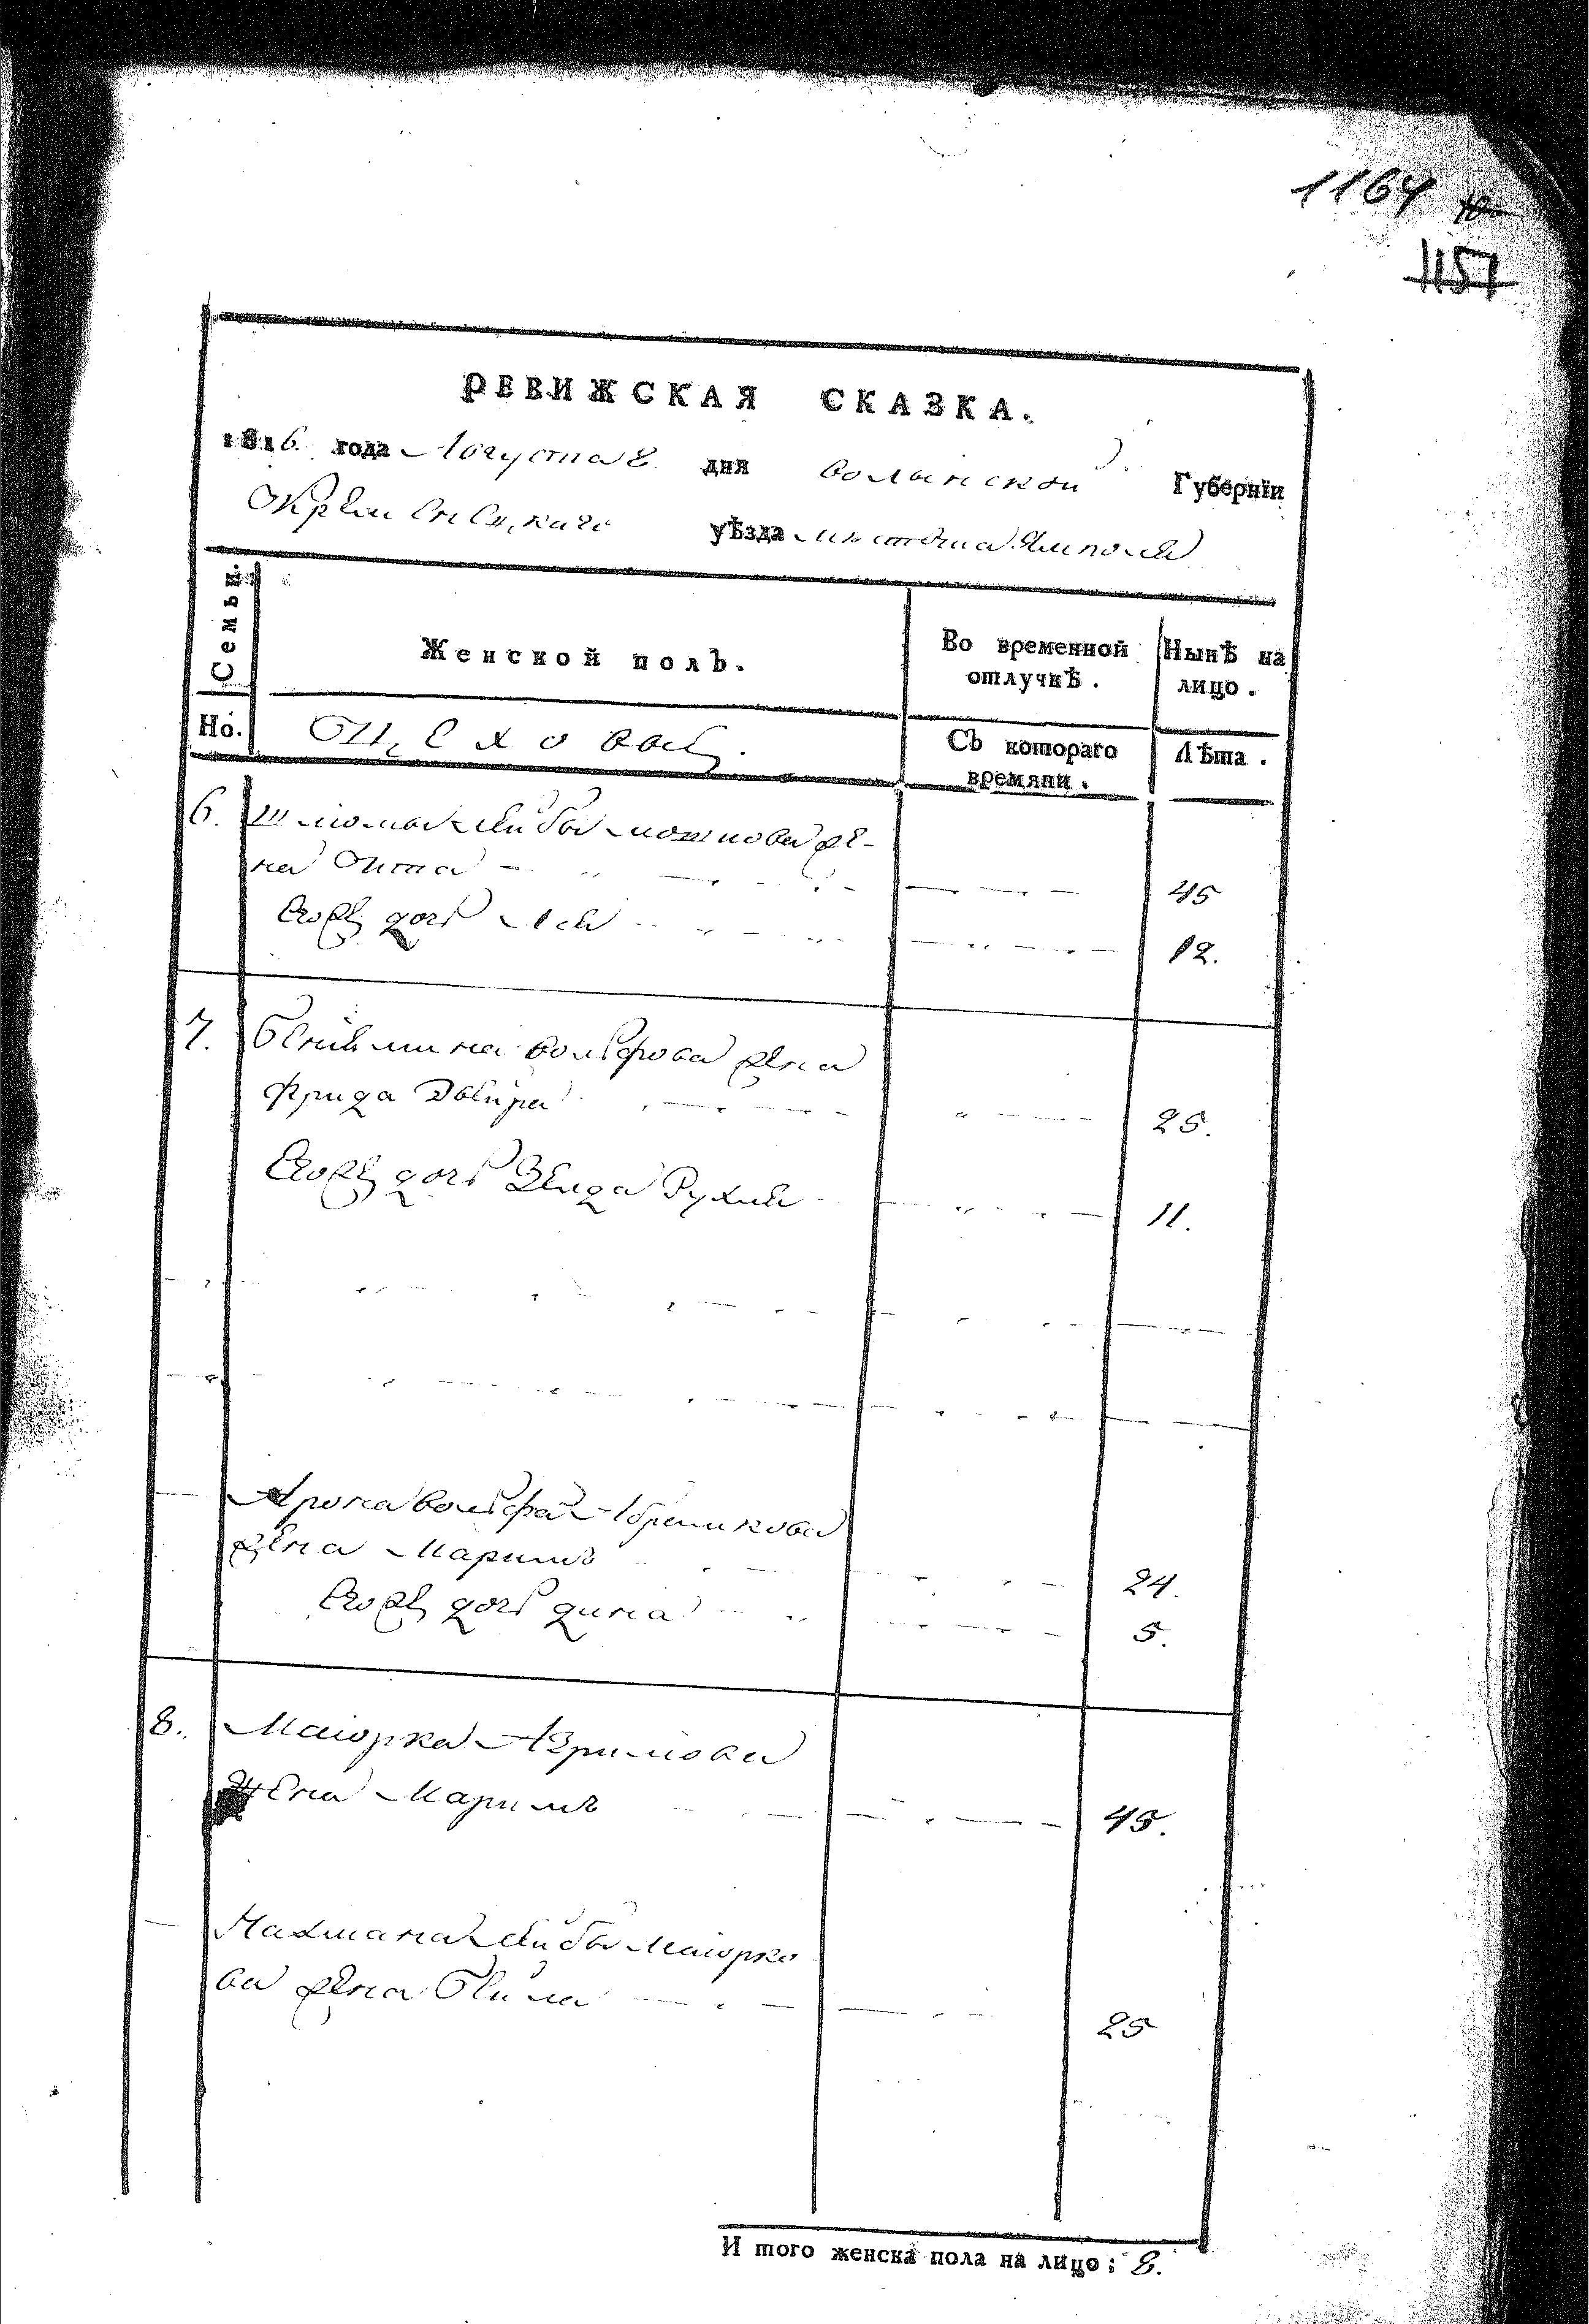 1164
1157
РЕВИЖСКАЯ СКАЗКА.
1816. года Августа 8 дня Волынской Губерніи
Кременецкаго уѣзда мѣстечка Ямполя
Семьи. Женской полъ. Во временной отлучкѣ. Нынѣ на лицо.
Но. Цеховые. Съ котораго времяни. Лѣта.
6. Шлиомы Лейбы Мошкова же-
на Ита 45
Егожъ дочь Лея 12.
7. Бениямина Вольфова жена
Фрида Двейра 25.
Егожъ дочь Зелда Рухля 11.
Арона Вольфа Абрамкова
жена Маримъ 24.
Егожъ дочь дина 5.
8. Маіорка Азрилова
жена Маримъ 45.
Нахмана Лейбы Маіорко
ва жена Бейла 25
И того женска пола на лицо: 8.